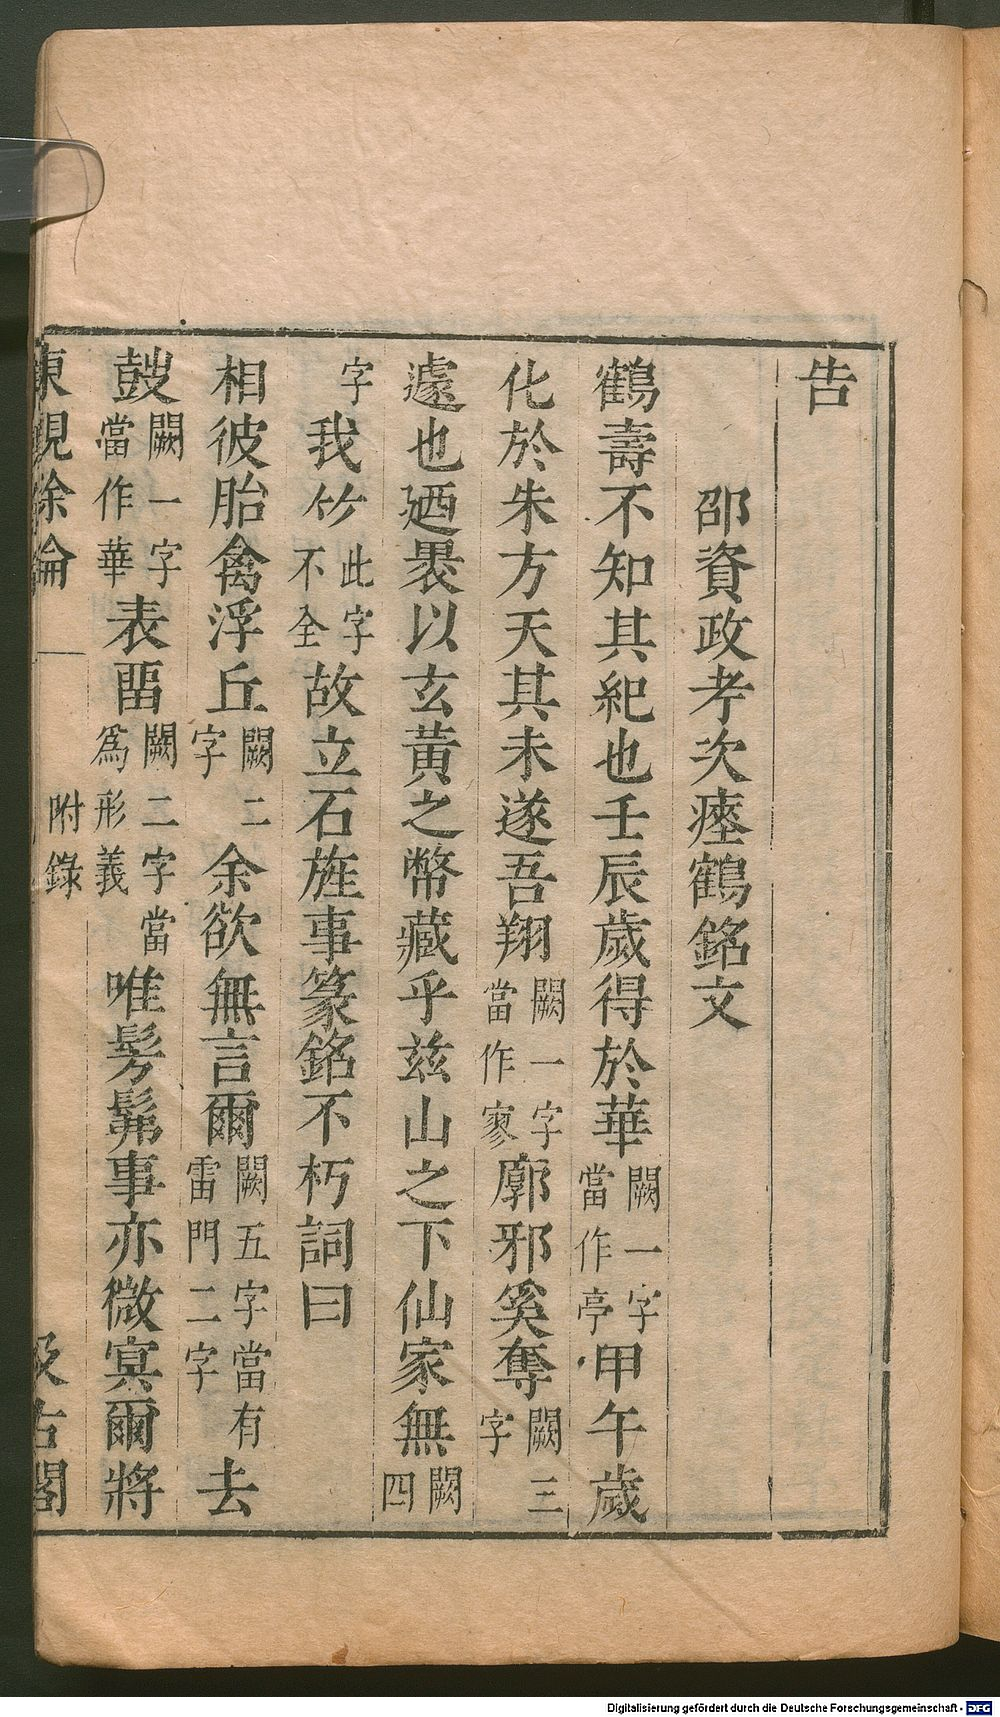 告
邵資政考次瘞鶴銘文
鶴壽不知其紀也壬辰歲得於華闕一字當作亭甲午歲
化於朱方天其未遂吾翔闕一字當作寥廓邪奚奪闕三字
遽也廼裹以玄黃之幣藏乎茲山之下仙家無闕四
字我竹此字不全故立石旌事篆銘不朽詞曰
相彼胎禽浮丘闕二字余欲無言爾闕五字當有雷門二字去
鼓闕一字當作華表留闕二字當爲形義唯髣髴事亦微冥爾將
東觀餘論 附錄 汲古閣
Digitalisierung gefördert durch die Deutsche Forschungsgemeinschaft - DFG